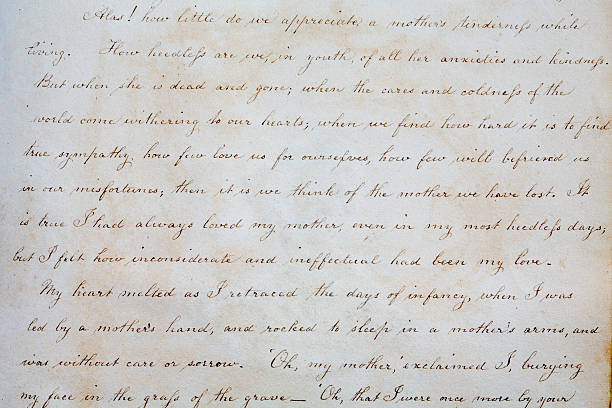 Alas! how little do we appreciate a mother's tenderness while
living. How heedless are we, in youth, of all her anxieties and kindness.
But when she is dead and gone; when the cares and coldness of the
world come withering to our hearts; when we find how hard it is to find
true sympathy, how few love us for ourselves, how few will befriend us
in our misfortunes; then it is we think of the mother we have lost. It
is true I had always loved my mother, even in my most heedless days;
but I felt how inconsiderate and ineffectual had been my love.
My heart melted as I retraced the days of infancy, when I was
led by a mother's hand, and rocked to sleep in a mother's arms, and
was without care or sorrow. 'Oh, my mother,' exclaimed I, burying
my face in the grass of the grave — Oh, that I were once more by your